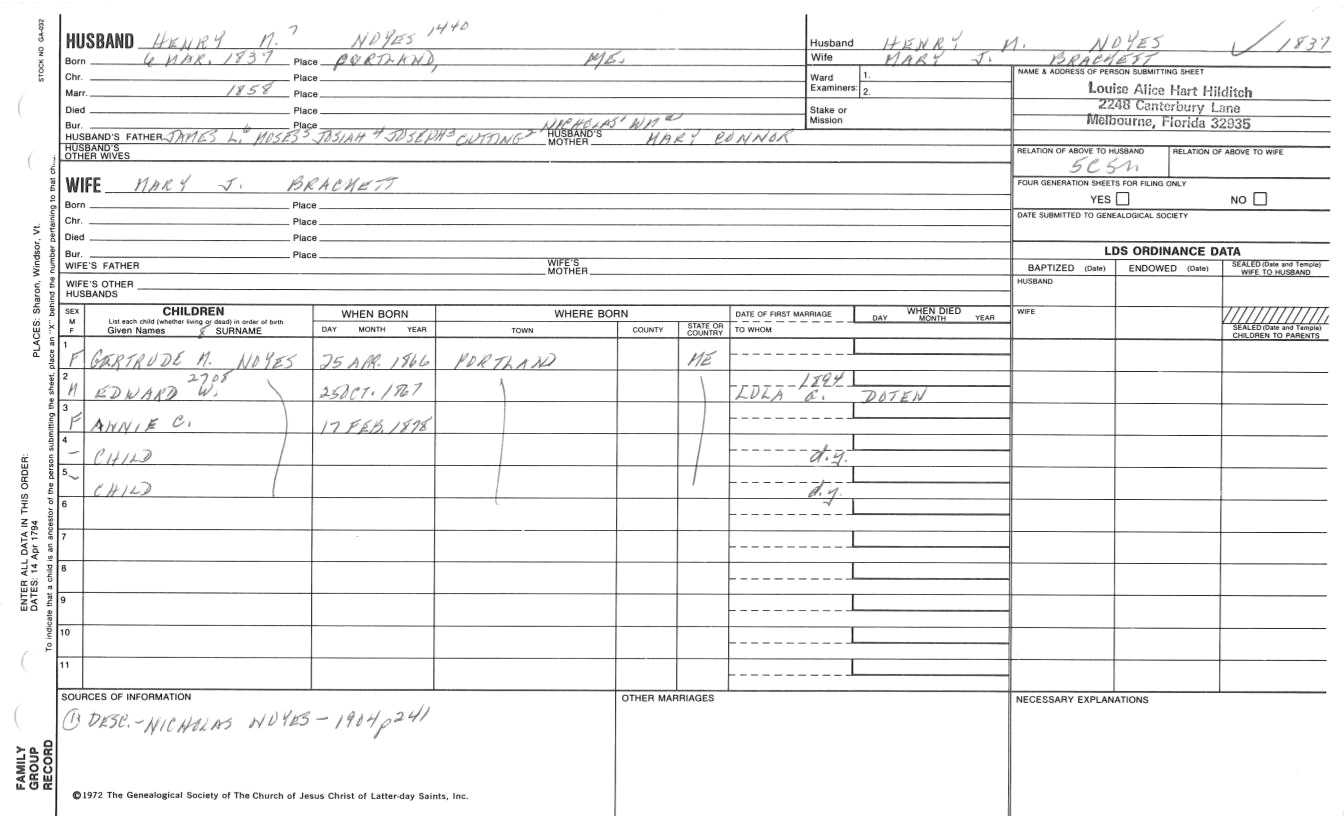 STOCK NO. GA-032
HUSBAND HENRY M.7 NOYES 1440
Born 6 MAR. 1837 Place PORTLAND, ME.
Chr. Place
Marr. 1858 Place
Died Place
Bur. Place NICHOLAS' WM
HUSBAND'S FATHER JAMES L.6 MOSES5 JOSIAH4 JOSEPH3 CUTTING2 HUSBAND'S MOTHER MARY CONNOR
HUSBAND'S OTHER WIVES
WIFE MARY J. BRACKETT
Born Place
Chr. Place
Died Place
Bur. Place
WIFE'S FATHER WIFE'S MOTHER
WIFE'S OTHER HUSBANDS
Husband HENRY M. NOYES ✓ 1837
Wife MARY J. BRACKETT
Ward Examiners: 1. 2.
Stake or Mission
NAME & ADDRESS OF PERSON SUBMITTING SHEET
Louise Alice Hart Hilditch
2248 Canterbury Lane
Melbourne, Florida 32935
RELATION OF ABOVE TO HUSBAND RELATION OF ABOVE TO WIFE
5C5R
FOUR GENERATION SHEETS FOR FILING ONLY
YES NO
DATE SUBMITTED TO GENEALOGICAL SOCIETY
LDS ORDINANCE DATA
BAPTIZED (Date) ENDOWED (Date) SEALED (Date and Temple) WIFE TO HUSBAND
HUSBAND
WIFE
SEALED (Date and Temple) CHILDREN TO PARENTS
SEX M F
CHILDREN
List each child (whether living or dead) in order of birth
Given Names 8 SURNAME
WHEN BORN
DAY MONTH YEAR
WHERE BORN
TOWN COUNTY STATE OR COUNTRY
DATE OF FIRST MARRIAGE
TO WHOM
WHEN DIED
DAY MONTH YEAR
1 F GERTRUDE M. NOYES 25 APR. 1866 PORTLAND ME
2 M EDWARD W. 2708 25 OCT. 1867 1894 LOLA E. DOTEN
3 F ANNIE C. 17 FEB. 1878
4 – CHILD d.y.
5 – CHILD d.y.
6
7
8
9
10
11
SOURCES OF INFORMATION
① DESC.-NICHOLAS NOYES-1904 p 241
OTHER MARRIAGES
NECESSARY EXPLANATIONS
©1972 The Genealogical Society of The Church of Jesus Christ of Latter-day Saints, Inc.
FAMILY GROUP RECORD
ENTER ALL DATA IN THIS ORDER:
DATES: 14 Apr 1794
PLACES: Sharon, Windsor, Vt.
To indicate that a child is an ancestor of the person submitting the sheet, place an "X" behind the number pertaining to that ch